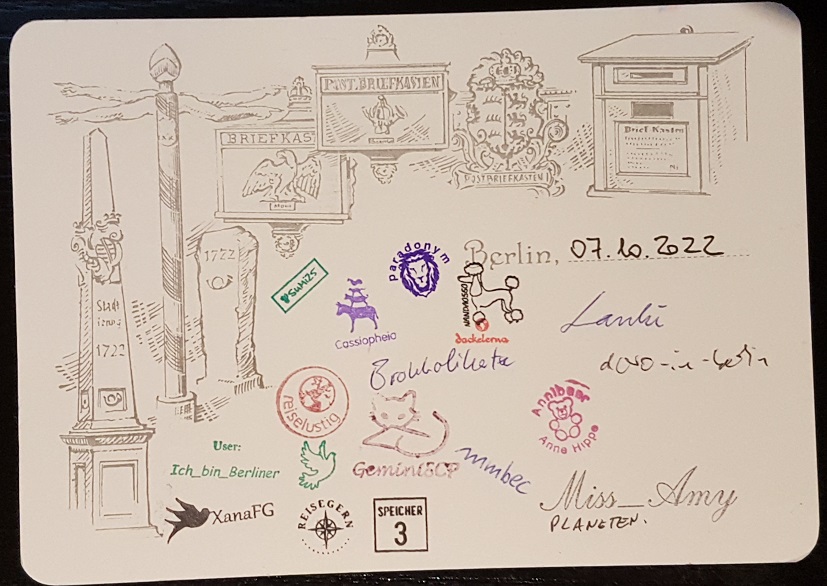 POST-BRIEFKASTEN
BRIEFKAS
POSTBRIEFKASTEN
Brief Kasten
1722
Stadt
1722
Berlin, 07.10.2022
paradonym
Cassiopheia
dackelerna
dovo-in-berlin
reiselustig
Annibaer
Anne Hippe
User:
Ich_bin_Berliner
GeminiSCP
mmbec
XanaFG
REISEGERN
SPEICHER
3
Miss_Amy
PLANETEN.